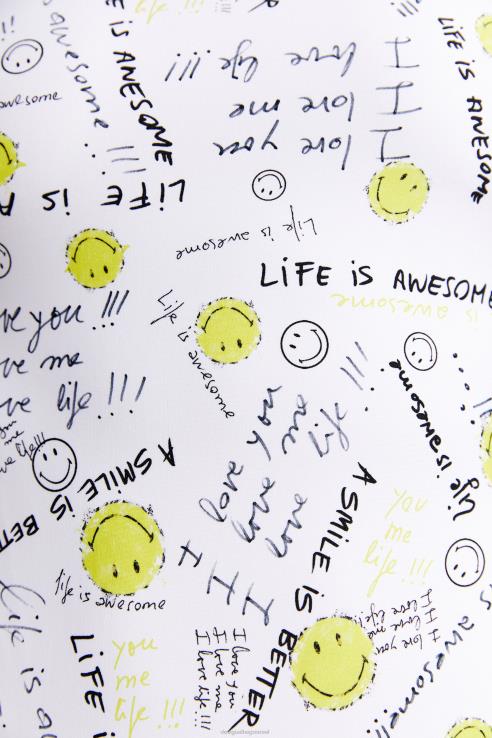 is AWESOME
awesome !!!
awesome
LIFE IS AWESOME
I love life !!!
I love me
I love you
LIFE IS A
Life is awesome
LIFE IS AWESOME
is awesome
ve you !!!
ve me
ve life !!!
Life is awesome
Life is awesome
me
ve life!!!
A SMILE IS BETTE
I love you
I love me
I love life !!!
A SMILE IS BETTER
you
me
life !!!
life is awesome
I love you
I love me
I love life!!
s awesome!!
Life is a
LIFE I
you
me
life !!!
I love you
I love me
I love life !!!